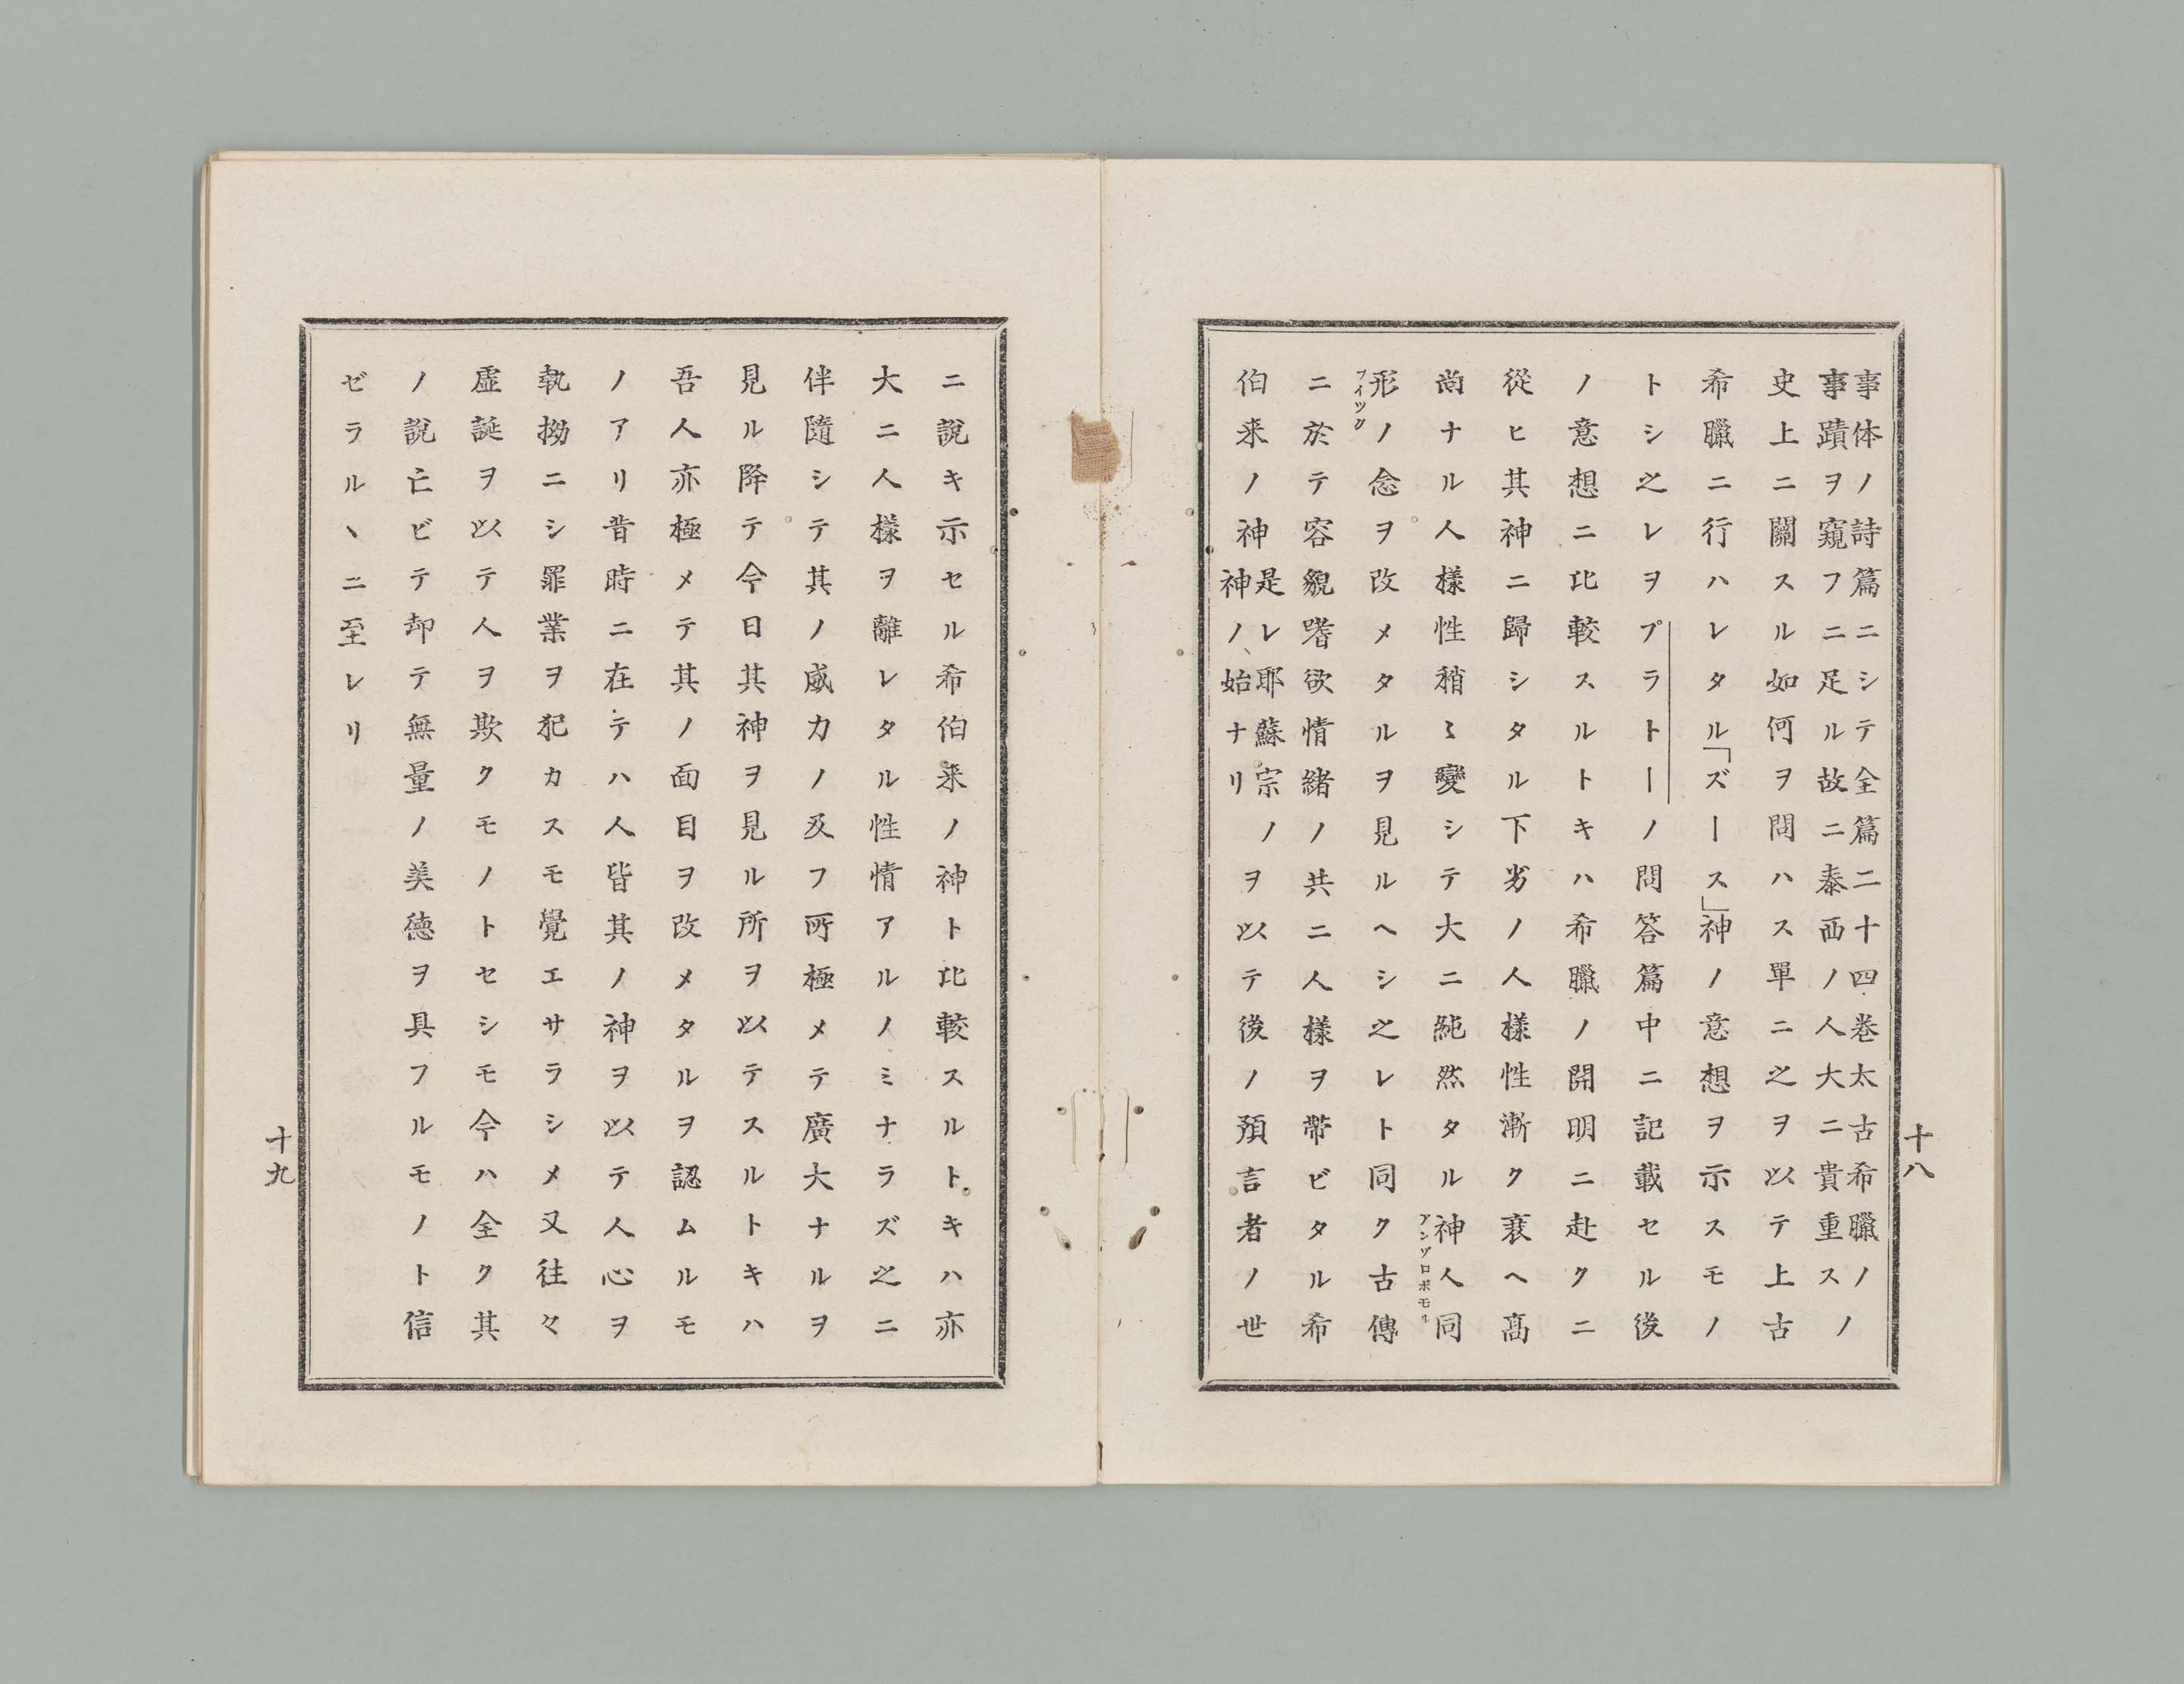 事体ノ詩篇ニシテ全篇二十四巻太古希臘ノ
事蹟ヲ窺フニ足ル故ニ泰西ノ人大ニ貴重スノ
史上ニ關スル如何ヲ問ハス單ニ之ヲ以テ上古
希臘ニ行ハレタル「ズース」神ノ意想ヲ示スモノ
トシ之レヲプラトーノ問答篇中ニ記載セル後
ノ意想ニ比較スルトキハ希臘ノ開明ニ赴クニ
從ヒ其神ニ歸シタル下劣ノ人樣性漸ク衰ヘ高
尚ナル人樣性稍〻變シテ大ニ純然タル神人同
アンソロポモル
形ノ念ヲ改メタルヲ見ルヘシ之レト同ク古傳
フイツク
ニ於テ容貌嗜欲情緒ノ共ニ人樣ヲ帶ビタル希
伯来ノ神
是レ耶蘇宗ノ
神ノ始ナリ
ヲ以テ後ノ預言者ノ世
十八
ニ說キ示セル希伯来ノ神ト比較スルトキハ亦
大ニ人樣ヲ離レタル性情アルノミナラズ之ニ
伴隨シテ其ノ威力ノ及フ所極メテ廣大ナルヲ
見ル降テ今日其神ヲ見ル所ヲ以テスルトキハ
吾人亦極メテ其ノ面目ヲ改メタルヲ認ムルモ
ノアリ昔時ニ在テハ人皆其ノ神ヲ以テ人心ヲ
執拗ニシ罪業ヲ犯カスモ覺エサラシメ又往々
虛誕ヲ以テ人ヲ欺クモノトセシモ今ハ全ク其
ノ說亡ビテ却テ無量ノ美徳ヲ具フルモノト信
ゼラルヽニ至レリ
十九